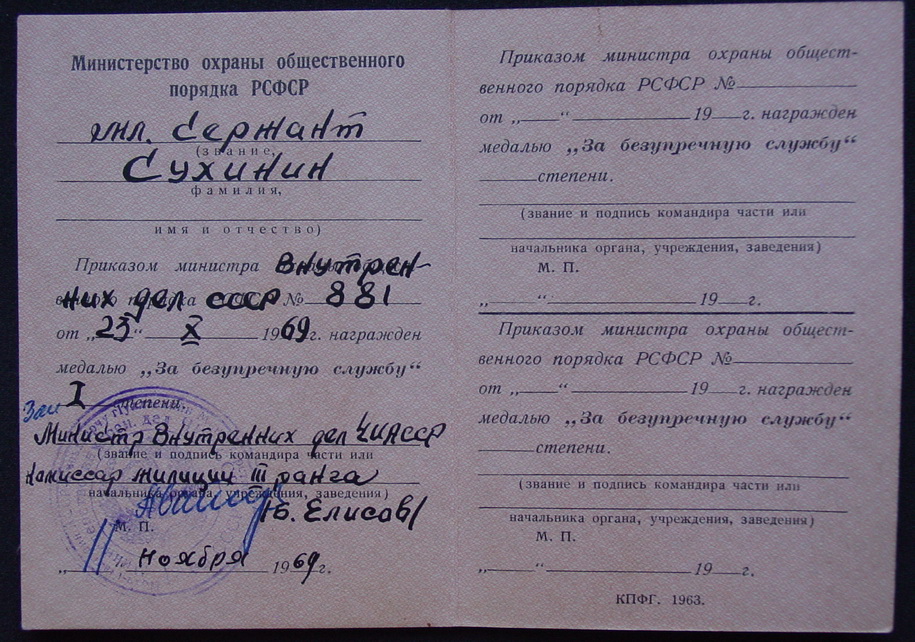 Министерство охраны общественного
порядка РСФСР
мл. сержант
(звание,
Сухинин
фамилия,
имя и отчество)
Приказом министра Внутрен-
них дел СССР № 881
от „23“ X 1969г. награжден
медалью „За безупречную службу“
Зам I степени.
Министр Внутренних дел ЧИАССР
(звание и подпись командира части или
комиссар милиции III ранга
начальника органа, учреждения, заведения)
Елисов
М. П.
„ “ ноября 1969г.
Приказом министра охраны общест-
венного порядка РСФСР №
от „ “ 19 г. награжден
медалью „За безупречную службу“
степени.
(звание и подпись командира части или
начальника органа, учреждения, заведения)
М. П.
„ “ 19 г.
Приказом министра охраны общест-
венного порядка РСФСР №
от „ “ 19 г. награжден
медалью „За безупречную службу“
степени.
(звание и подпись командира части или
начальника органа, учреждения, заведения)
М. П.
„ “ 19 г.
КПФГ. 1963.